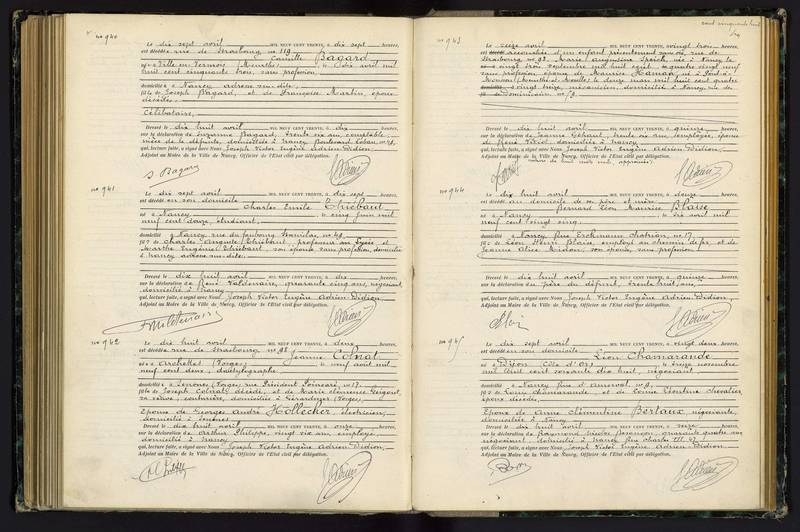 no 940
Le dix sept avril MIL NEUF CENT TRENTE, à dix sept heures,
est décédée rue de Strasbourg no 119 Camille Bagard
née à Ville en Vermois (Meurthe), le dix avril mil
huit cent cinquante trois, sans profession,
domiciliée à Nancy adresse susdite;
fille de Joseph Bagard, et de Françoise Martin, époux
décédés.
Célibataire,
Dressé le dix huit avril MIL NEUF CENT TRENTE, à dix heures,
sur la déclaration de Suzanne Bagard, trente six ans, comptable,
nièce de la défunte, domiciliée à Nancy Boulevard Lobau
qui, lecture faite, a signé avec Nous Joseph Victor Eugène Adrien Didion,
Adjoint au Maire de la Ville de Nancy, Officier de l'Etat civil par délégation.
S Bagard
no 941
Le dix sept avril MIL NEUF CENT TRENTE, à sept heures,
est décédé en son domicile Charles Emile Thiébaut
né à Nancy le cinq juin mil
neuf cent douze, étudiant,
domicilié à Nancy rue du faubourg Stanislas
fils de Charles Auguste Thiébaut, professeur au Lycée et
Marthe Eugénie Thiébaut, son épouse sans profession, domiciliés
à Nancy adresse susdite.
Dressé le dix huit avril MIL NEUF CENT TRENTE, à dix heures,
sur la déclaration de René Valdenaire, quarante cinq ans, négociant
domicilié à Nancy
qui, lecture faite, a signé avec Nous Joseph Victor Eugène Adrien Didion,
Adjoint au Maire de la Ville de Nancy, Officier de l'Etat civil par délégation.
no 942
Le dix huit avril MIL NEUF CENT TRENTE, à deux heures,
est décédée rue de Strasbourg no Jeanne Colnat
née à Archettes (Vosges) le neuf août mil
neuf cent deux, dactylographe
domiciliée à Senones (Vosges) rue Président Poincaré no 17.
fille de Joseph Colnat, décédé, et de Marie Clémence
sa veuve, couturière, domiciliée à Gérardmer (Vosges)
Epouse de Georges André Hollecher, électricien,
domicilié à Senones
Dressé le dix huit avril MIL NEUF CENT TRENTE, à onze heures,
sur la déclaration de Arthur Philippe, vingt six ans, employé
domicilié à Nancy
qui, lecture faite, a signé avec Nous Joseph Victor Eugène Adrien Didion,
Adjoint au Maire de la Ville de Nancy, Officier de l'Etat civil par délégation.
cent cinquante huit
no 943
Le seize avril MIL NEUF CENT TRENTE, à vingt trois heures,
est accouchée d'un enfant présentement sans vie, rue de
Strasbourg no Marie Augustine Speich, née à Nancy le
vingt trois septembre mil huit cent quatre vingt neuf
sans profession, épouse de Maurice né à Pont-à-
Mousson (Meurthe et Moselle) le douze mai mil huit cent quatre
vingt treize, mécanicien, domiciliés à Nancy, rue
Dominicains
Dressé le dix huit avril MIL NEUF CENT TRENTE, à quinze heures,
sur la déclaration de Jeanne trente six ans, employée, épouse
de René domiciliée à Nancy
qui, lecture faite, a signé avec Nous Joseph Victor Eugène Adrien Didion,
Adjoint au Maire de la Ville de Nancy, Officier de l'Etat civil par délégation.
no 944
Le dix huit avril MIL NEUF CENT TRENTE, à douze heures,
est décédé au domicile de ses père et mère Bernard Léon Maurice Blaise
né à Nancy le dix avril mil
neuf cent vingt cinq.
domicilié à Nancy rue Erckmann Chatrian, no 17.
fils de Léon Henri Blaise, employé au chemin de fer, et de
Jeanne Alice Didon, son épouse, sans profession.
Dressé le dix huit avril MIL NEUF CENT TRENTE, à quinze heures,
sur la déclaration du père du défunt, trente huit ans,
qui, lecture faite, a signé avec Nous Joseph Victor Eugène Adrien Didion,
Adjoint au Maire de la Ville de Nancy, Officier de l'Etat civil par délégation.
no 945
Le dix sept avril MIL NEUF CENT TRENTE, à vingt deux heures,
est décédé en son domicile Léon Chamarande
né à Dijon (Côte d'Or) le treize novembre
mil huit cent soixante dix huit, négociant
domicilié à Nancy rue d'Amerval no 9,
fils de Louis Chamarande, et de Léontine Chevalier
époux décédés,
Epoux de Anne Clémentine Bertaux négociante,
domiciliée à Nancy
Dressé le dix huit avril MIL NEUF CENT TRENTE, à seize heures,
sur la déclaration de Raymond Nicolas Besançon, quarante quatre ans
négociant domicilié à Nancy rue Charles III
qui, lecture faite, a signé avec Nous Joseph Victor Eugène Adrien Didion,
Adjoint au Maire de la Ville de Nancy, Officier de l'Etat civil par délégation.